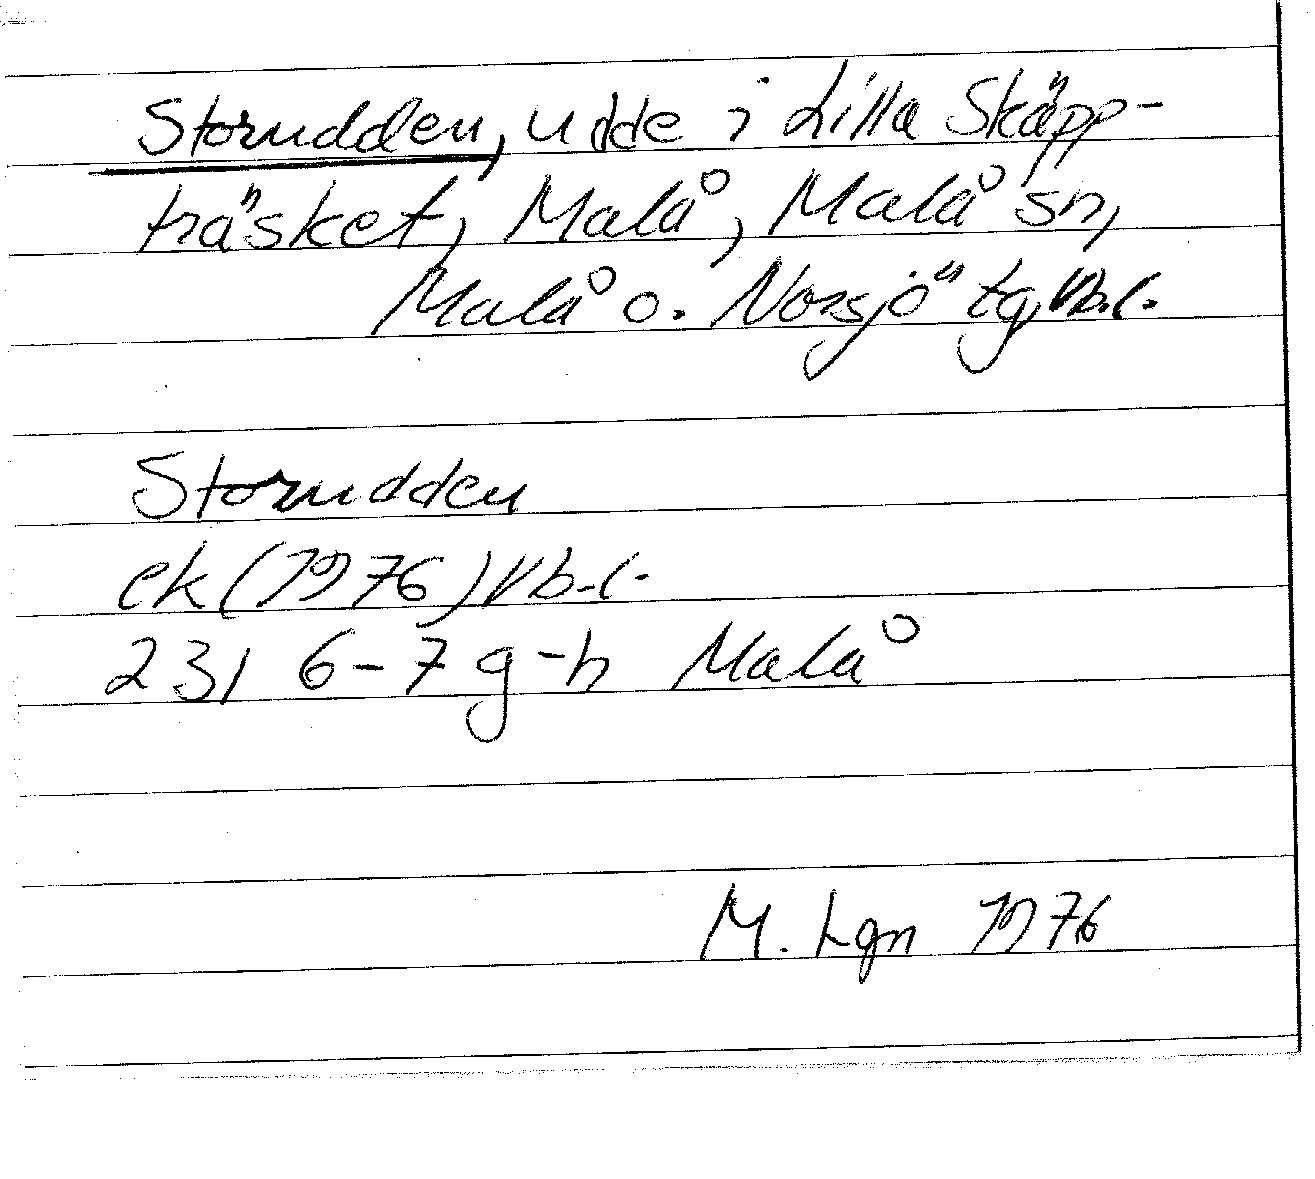 Storudden, udde i Lilla Skäpp-
träsket, Malå, Malå sn,
Malå o. Norsjö tg, Vb.l.
Storudden
ek (1976) Vb.l.
23I 6-7 g-h Malå
M. Lgn 1976